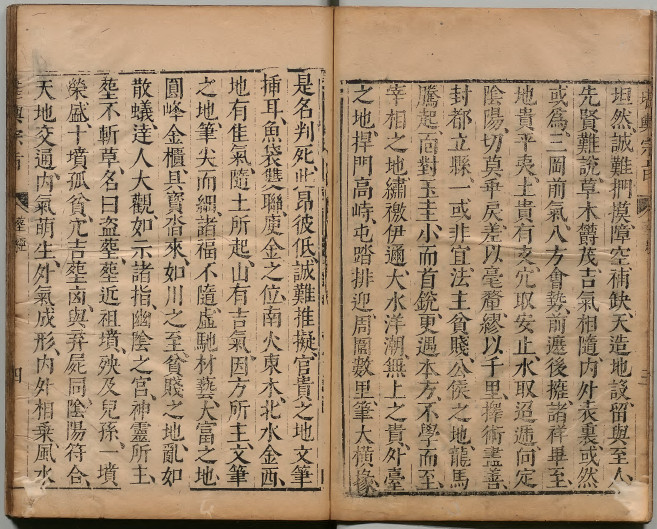 堪輿宗旨
坦然誠難捫摸障空補缺天造地設留與至人
先賢難說草木欝茂吉氣相隨內外表裏或然
或爲三岡前氣八方會勢前遮後擁諸祥畢至
地貴平夷土貴有支穴取安止水取迢遞向定
陰陽切莫乖戾差以毫釐繆以千里擇術盡善
封都立縣一或非宜法主貧賤公侯之地龍馬
騰起面對玉圭小而首銳更過本方不學而至
宰相之地繡繳伊邇大水洋潮無上之貴外臺
之地捍門高峙屯踏排迎周圍數里筆大橫椽
是名判死此昂彼低誠難推擬官貴之地文筆
揷耳魚袋雙聯庚金之位南火東木北水金西
地有佳氣隨土所起山有吉氣因方所主文筆
之地筆尖而細諸福不隨虛馳材藝大富之地
圓峰金櫃具寶沓來如川之至貧賤之地亂如
散蟻達人大觀如示諸指幽陰之宮神靈所主
塟不斬草名曰盗塟塟近祖墳殃及兒孫一墳
榮盛十墳孤貧穴吉塟凶與弃屍同陰陽符合
天地交通內氣萌生外氣成形內外相乘風水
堪輿宗旨 塟經 四